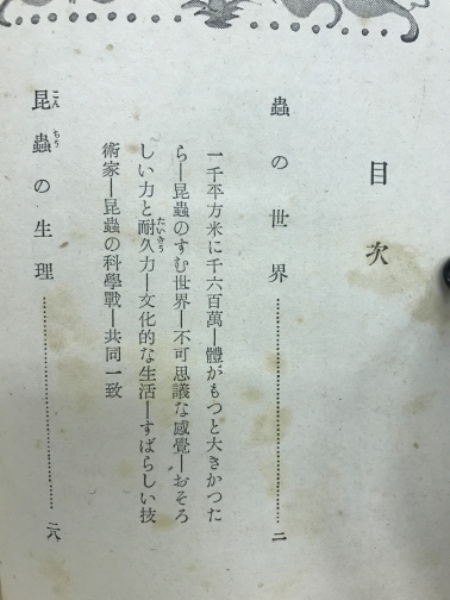 目次
蟲の世界…………………………二
一千平方米に千六百萬―體がもつと大きかつた
ら―昆蟲のすむ世界―不可思議な感覺―おそろ
しい力と耐久力―文化的な生活―すばらしい技
術家―昆蟲の科學戰―共同一致
昆蟲の生理…………………………二八